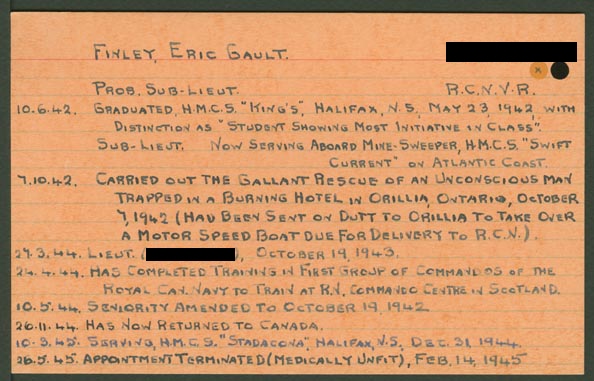 FINLEY, ERIC GAULT.
PROB. SUB-LIEUT. R.C.N.V.R.
10.6.42. GRADUATED, H.M.C.S. "KING'S", HALIFAX, N.S. MAY 23, 1942, WITH
DISTINCTION AS "STUDENT SHOWING MOST INITIATIVE IN CLASS".
SUB-LIEUT. NOW SERVING ABOARD MINE-SWEEPER, H.M.C.S. "SWIFT
CURRENT" ON ATLANTIC COAST.
7.10.42. CARRIED OUT THE GALLANT RESCUE OF AN UNCONSCIOUS MAN
TRAPPED IN A BURNING HOTEL IN ORILLIA, ONTARIO, OCTOBER
7, 1942 (HAD BEEN SENT ON DUTY TO ORILLIA TO TAKE OVER
A MOTOR SPEED BOAT DUE FOR DELIVERY TO R.C.N.).
29.3.44. LIEUT. ( ), OCTOBER 19, 1943.
24.4.44. HAS COMPLETED TRAINING IN FIRST GROUP OF COMMANDOS OF THE
ROYAL CAN. NAVY TO TRAIN AT R.N. COMMANDO CENTRE IN SCOTLAND.
10.5.44. SENIORITY AMENDED TO OCTOBER 19, 1942
26.11.44. HAS NOW RETURNED TO CANADA.
10.3.45. SERVING, H.M.C.S. "STADACONA", HALIFAX, N.S., DEC. 31, 1944.
26.5.45. APPOINTMENT TERMINATED (MEDICALLY UNFIT), FEB. 14, 1945